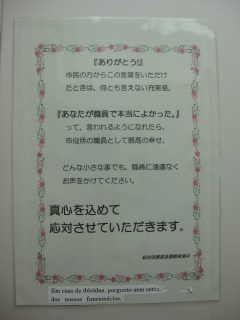 『ありがとう!』
市民の方からこの言葉をいただけ
たときは、何とも言えない充実感。
『あなたが職員で本当によかった。』
って、言われるようになれたら、
市役所の職員として最高の幸せ。
どんな小さな事でも、職員に遠慮なく
お声をかけてください。
真心を込めて
応対させていただきます。
Em caso de dúvidas, pergunte sem
dos nossos funcionários.